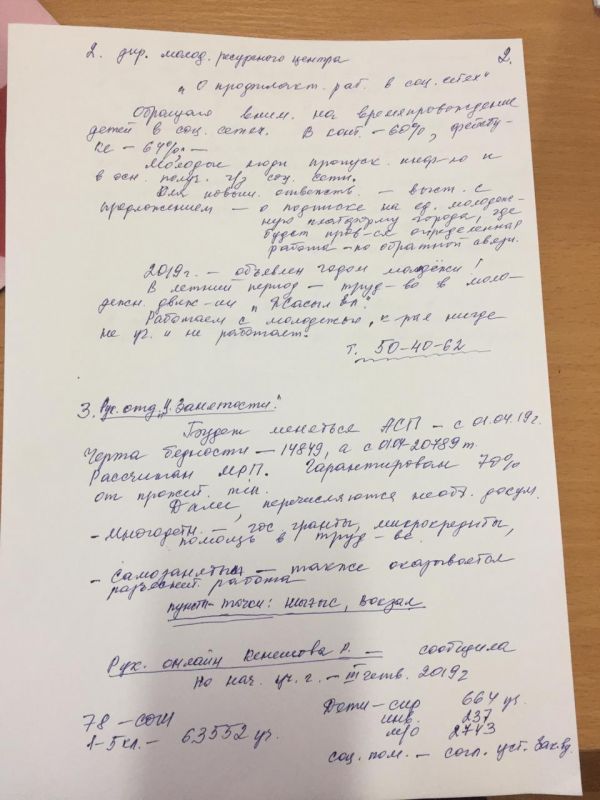 2. дир. молод. ресурсного центра 2.
„О профилакт. раб. в соц. сетях"
Обращаю вним. на времяпровождение
детей в соц. сетях. В конт. – 60%, фейсбу-
ке – 64%. –
Молодые люди пропуск. инф-ю и
в осн. получ. ч/з соц. сети.
Для повыш. ответств. – выст. с
предложением – о подписке на ед. молодеж-
ную платформу города, где
будет пров-ся определенная
работа – по обратной связи.
2019г. – объявлен годом молодёжи!
В летний период – труд-во в моло-
дежн. движ-ии „Жасыл ел".
Работаем с молодежью, к-рая нигде
не уч. и не работает.
т. 50-40-62
3. Рук. отд. „Ц. Занятости."
Будет меняться АСП – с 01.04.19г.
Черта бедности – 14849, а с 01.04 – 20789 т.
Рассчитан МРП. Гарантирован 70%
от прожит. min.
Далее, перечисляются необх. докум.
– Многодетн. – гос. гранты, микрокредиты,
помощь в труд-ве.
– Самозанятые – также оказывается
разъяснит. работа
пункт-точки: Шығыс, Вокзал
Рук. онлайн Кенешова Р. – сообщила
На нач. уч. г. – III четв. 2019г
Дети – сир 664 уч.
78 – СОШ инв. 237
1-5 кл. – 63552 уч. м/о 2743
соц. пом. – согл. уст. Зак.